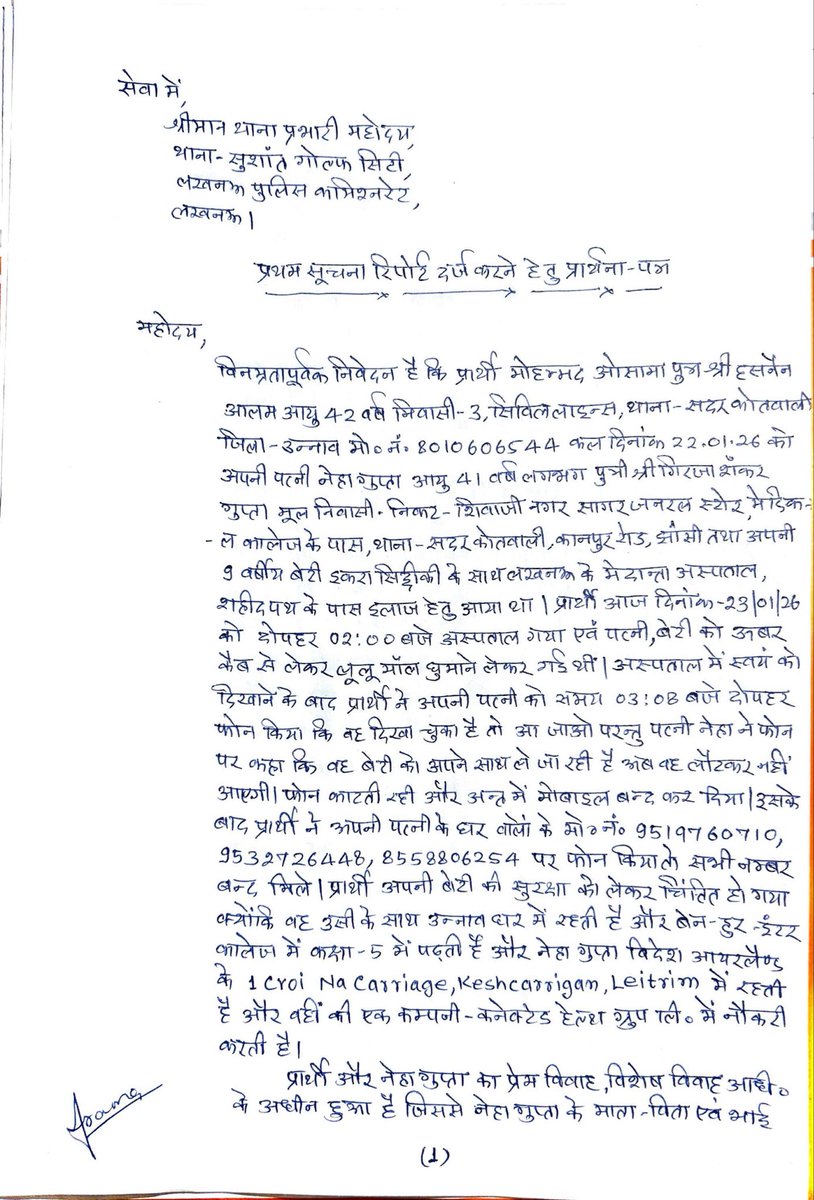 सेवा में,
श्रीमान थाना प्रभारी महोदय,
थाना- सुशांत गोल्फ सिटी,
लखनऊ पुलिस कमिश्नरेट,
लखनऊ।
प्रथम सूचना रिपोर्ट दर्ज करने हेतु प्रार्थना-पत्र
महोदय,
विनम्रतापूर्वक निवेदन है कि प्रार्थी मोहम्मद ओसामा पुत्र-श्री हसनैन
आलम आयु 42 वर्ष निवासी-3, सिविल लाइन्स, थाना-सदर कोतवाली
जिला-उन्नाव मो० नं० 8010606544 कल दिनांक 22.01.26 को
अपनी पत्नी नेहा गुप्ता आयु 41 वर्ष लगभग पुत्री श्री गिरजा शंकर
गुप्ता मूल निवासी- निकट-शिवाजी नगर सागर जनरल स्टोर, मेडिक-
-ल कालेज के पास, थाना-सदर कोतवाली, कानपुर रोड, झांसी तथा अपनी
9 वर्षीय बेटी इकरा सिद्दीकी के साथ लखनऊ के मेदान्ता अस्पताल,
शहीद पथ के पास इलाज हेतु आया था। प्रार्थी आज दिनांक-23/01/26
को दोपहर 02:00 बजे अस्पताल गया एवं पत्नी, बेटी को ऊबर
कैब से लेकर लूलू मॉल घुमाने लेकर गई थीं। अस्पताल में स्वयं को
दिखाने के बाद प्रार्थी ने अपनी पत्नी को समय 03:08 बजे दोपहर
फोन किया कि वह दिखा चुका है तो आ जाओ परन्तु पत्नी नेहा ने फोन
पर कहा कि वह बेटी को अपने साथ ले जा रही है अब वह लौटकर नहीं
आएगी। फोन काटती रही और अन्त में मोबाइल बन्द कर दिया। इसके
बाद प्रार्थी ने अपनी पत्नी के घर वालों के मो० नं० 9519760710,
9532726448, 8558806254 पर फोन किया तो सभी नम्बर
बन्द मिले। प्रार्थी अपनी बेटी की सुरक्षा को लेकर चिंतित हो गया
क्योंकि वह उसी के साथ उन्नाव घर में रहती है और बेन-हुर-इंटर
कालेज में कक्षा-5 में पढ़ती है और नेहा गुप्ता विदेश आयरलैण्ड
के 1 Croi Na Carriage, Keshcarrigan, Leitrim में रहती
है और वहीं की एक कम्पनी-कनेक्टेड हेल्थ ग्रुप ली० में नौकरी
करती है।
प्रार्थी और नेहा गुप्ता का प्रेम विवाह, विशेष विवाह अधि०
के अधीन हुआ है जिससे नेहा गुप्ता के माता-पिता एवं भाई
(1)